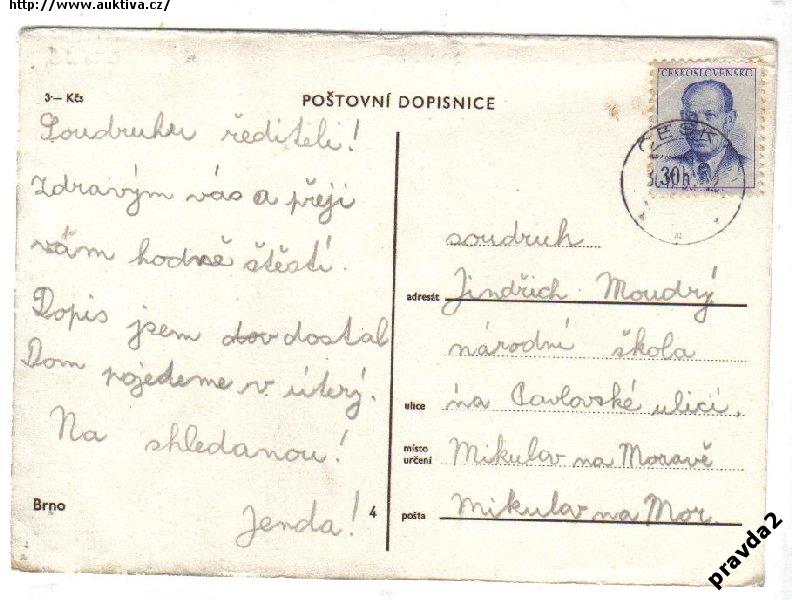 http://www.auktiva.cz/
3·— Kčs
POŠTOVNÍ DOPISNICE
ČESKOSLOVENSKO
30h
Soudruhu řediteli!
zdravým vás a přeji
vám hodně štěstí.
Dopis jsem dov dostal
Dom pojedeme v úterý.
Na shledanou!
Jenda!
Brno
4
soudruh
adresát Jindřich Moudrý
národní škola
ulice na Pavlovské ulici,
místo určení Mikulov na Moravě
pošta Mikulov na Mor.
pravda2